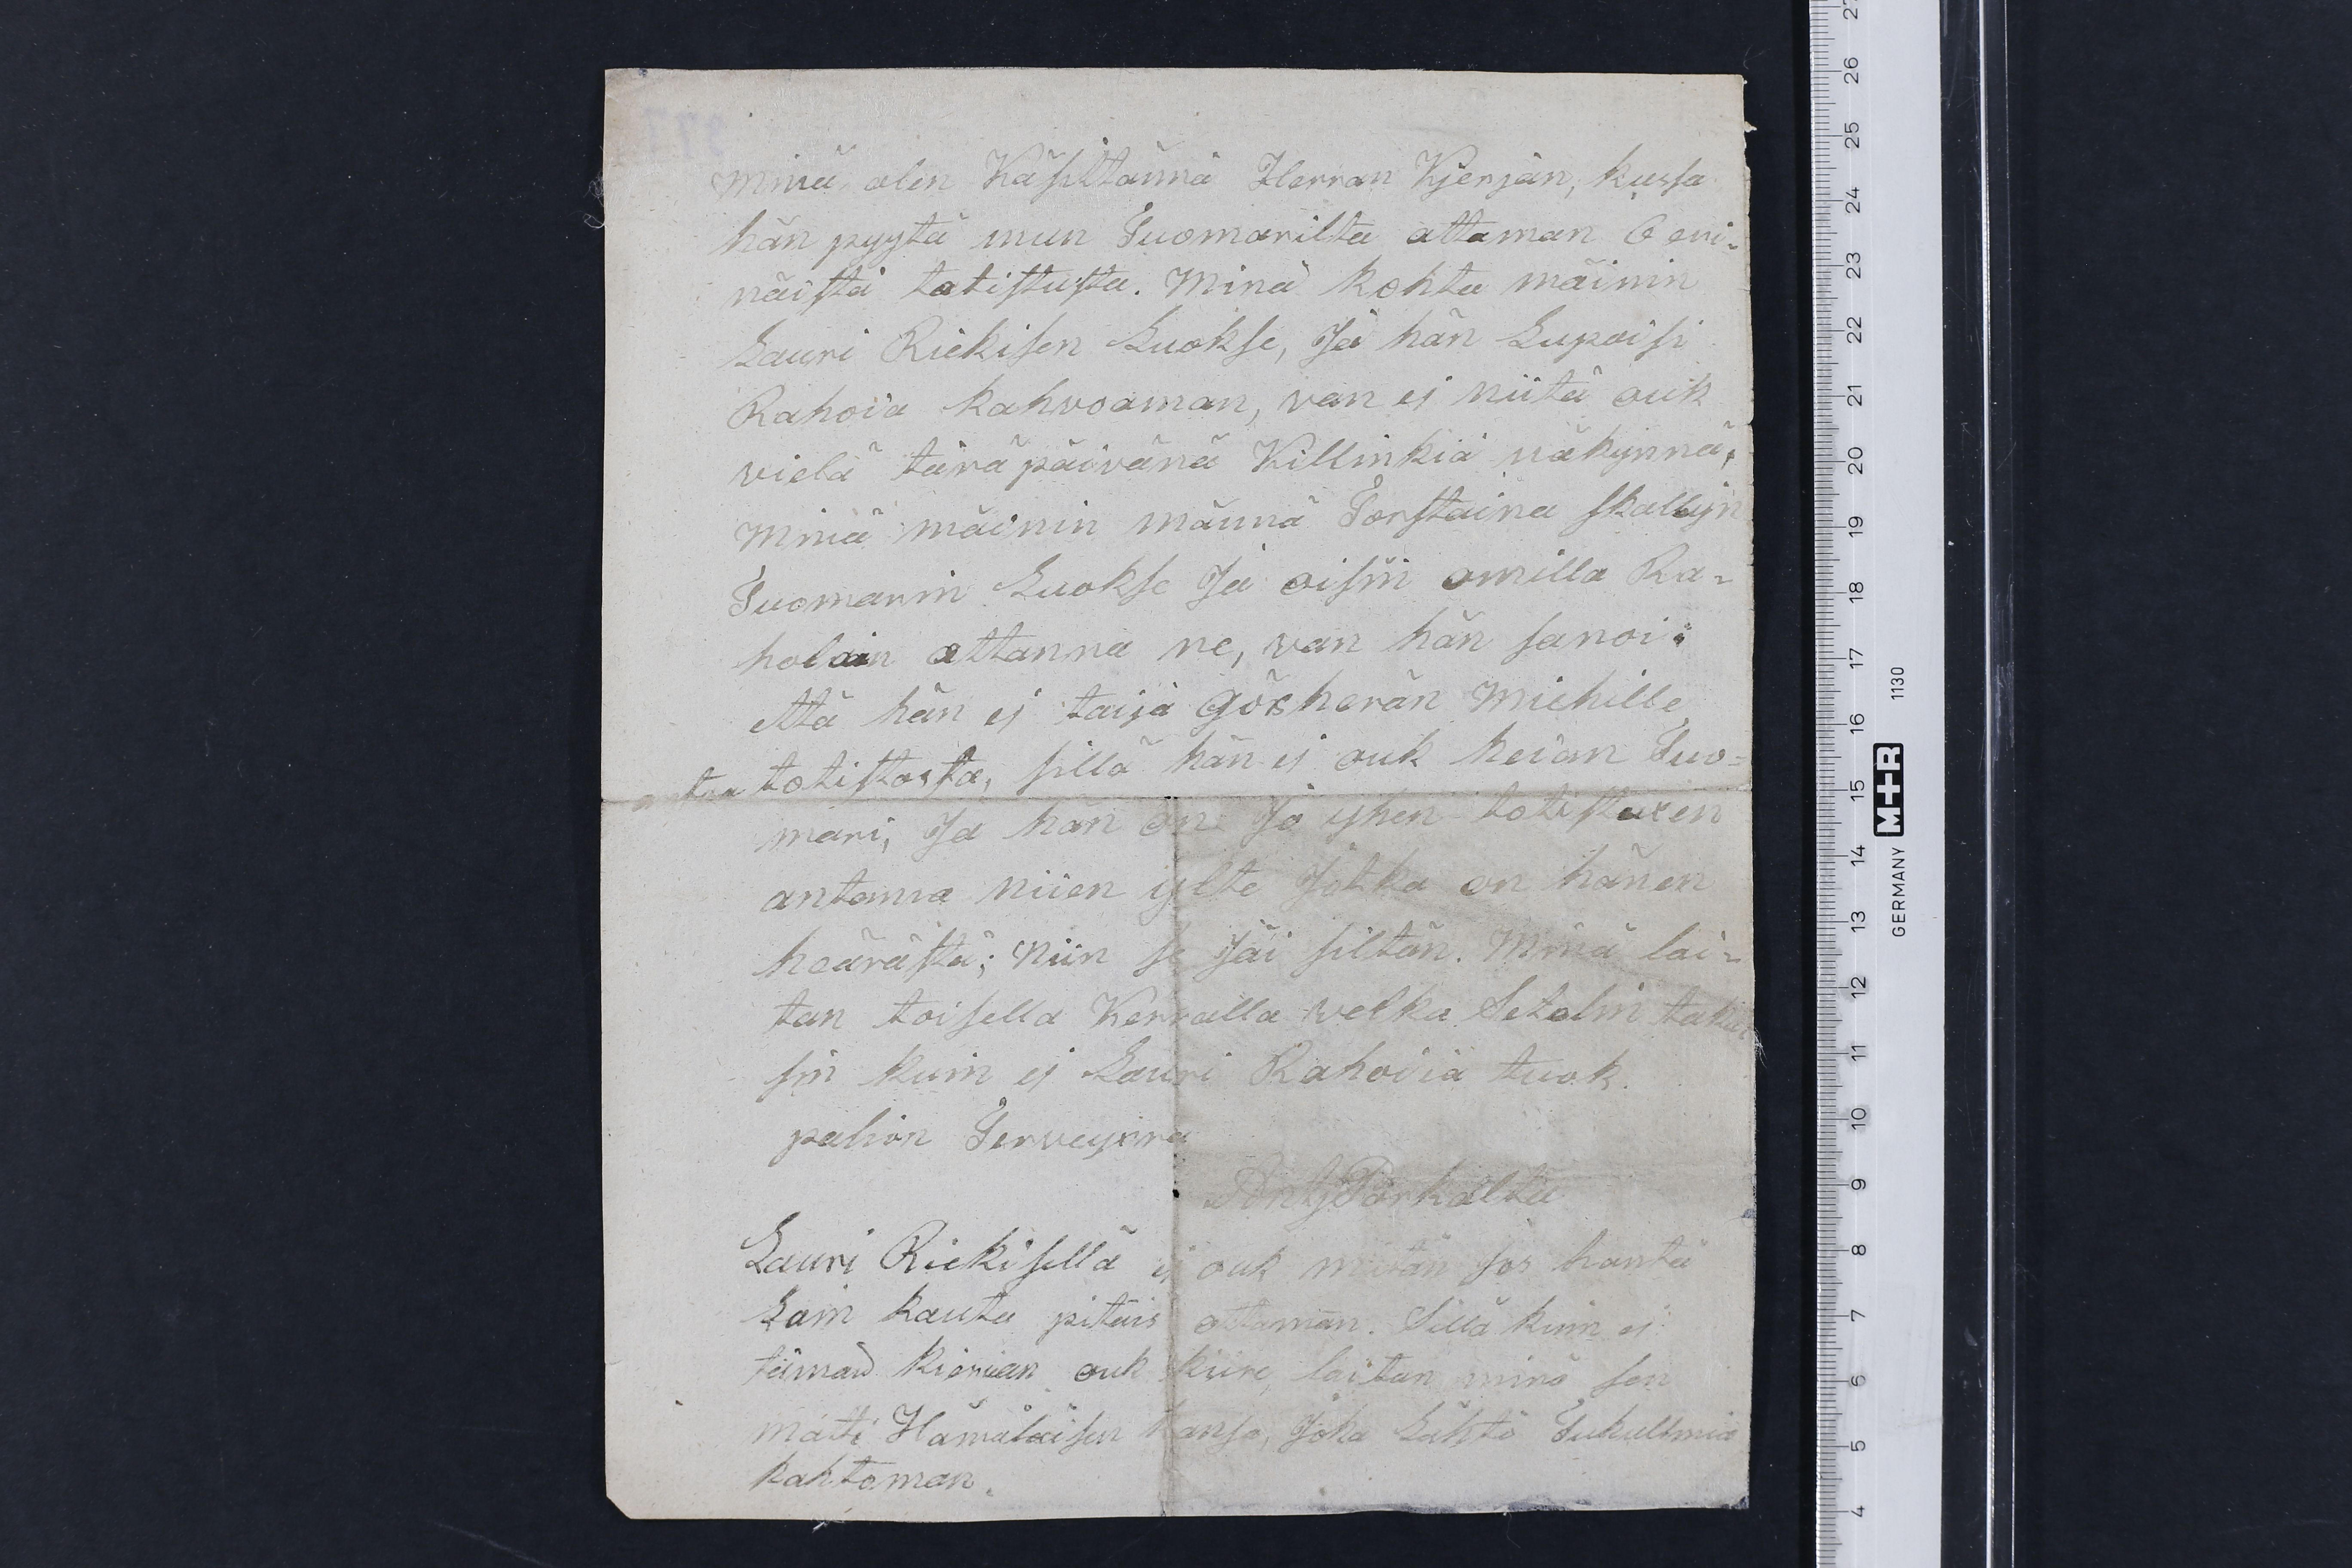 minä olin Käsittännä Herran Kjerjän, kussa
hän pyytä mun Tuomarilta attaman 6 eri-
näistä totistusta. Minä kohta mäinin
Lauri Riekisen Luokse, Ja hän Lupaisi
Rahoia kahvoaman, van ej niitä ouk
vielä tänä päivänä Killinkiä näkynnä,
Minä mäinin männä Torstaina skallijn
Tuomarin Luokse Ja oisin omilla Ra-
holain attanna ne, van hän sanoi:
että hän ej taija Gösherän Miehille
antaa totistosta, sillä hän ej ouk heiän Tuo=
mari, Ja hän on Jo yhen totistuxen
antanna niien ylte Jotka on hänen
heärästä; Niin se Jäi siltän. Minä lai-
tan toisella Kerralla velka Setelin takai
sin kuin ej Lauri Rahoiia tuok.
paljon Terveyxiä
Anty Parkaltu
Lauri Riekisellä ej ouk mitän Jos hantä
Lain kauta pitäis attaman. Sillä kuin ej
tämän kierian ouk kiire, laitan minä sen
Matti Hämäläisen kansa, Joka Lähtö Tukullmia
kahtoman.